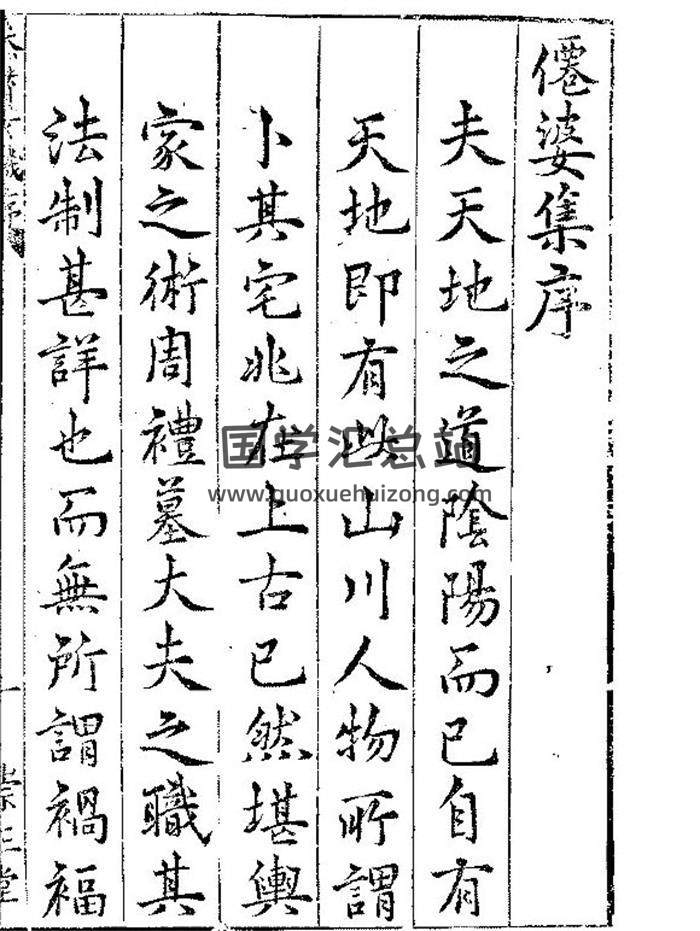 僊婆集序
夫天地之道陰陽而已自有
天地即有此山川人物所謂
卜其宅兆在上古已然堪輿
家之術周禮墓大夫之職其
法制甚詳也而無所謂禍福
一
崇正堂
国学汇总站
www.guoxuehuizong.com